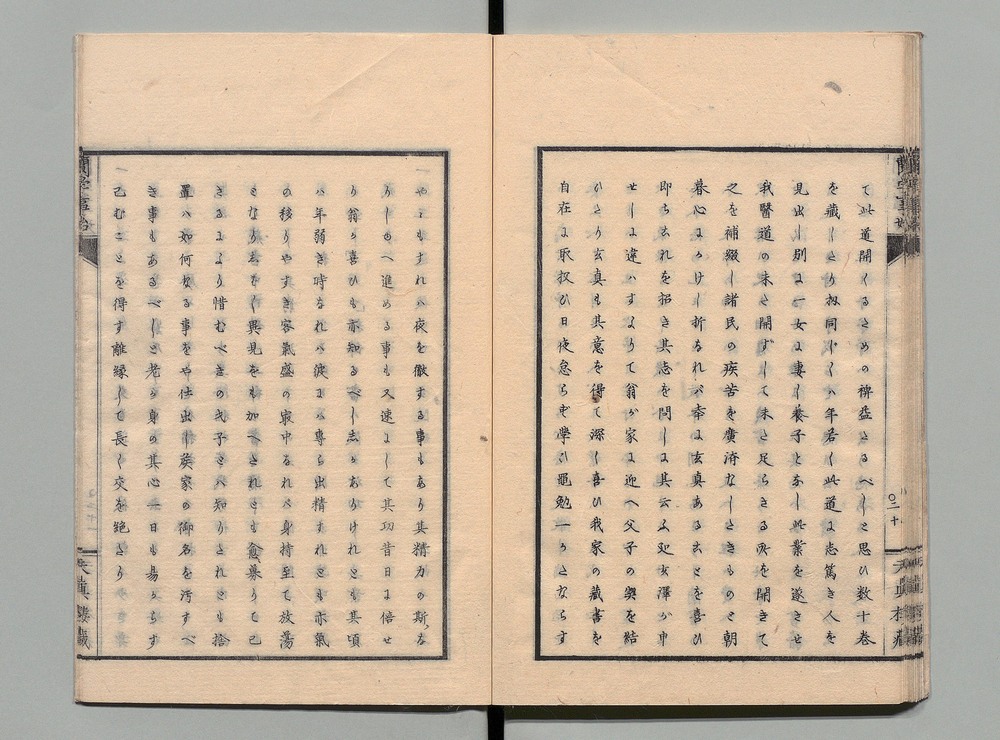 て此道開くるための裨益たるべしと思ひ数十巻
を蔵したり扨同じくハ年若く此道に志篤き人を
見出し別に一女に妻し養子となし此業を遂させ
我醫道の未た開ずして未た足らさる所を開きて
之を補綴し諸民の疾苦を廣済なしたきものと朝
暮心にかけし折なれバ幸に玄真あるを喜ひ
即ち之れを招き其志を問しに其云ふ処玄澤か申
せしに違ハすよりて翁か家に迎へ父子の契を結
ひたり玄真も其意を得て深く喜ひ我家の藏書を
自在に取扱ひ日夜怠らす學ひ黽勉一かたならす
やゝもすれハ夜を徹する事もあり其精力の斯な
りしゆへ進める事も又速にして其功昔日に倍せ
り翁か喜ひも亦知るべし然るなりけれとも其頃
ハ年弱き時なれハ彼にハ専ら出精すれとも亦氣
の移りやすき客氣盛の最中なれバ身持至て放蕩
となり志をく異見をも加へたれとも愈募りて已
さるにより惜むべきの才子とハ知りたれとも捨
置ハ如何なる事をや仕出し蔟家の御名を汚すべ
き事もあるべしと老か身の其心一日も易からす
己むことを得す離縁して長く交を絶たり
蘭学事始
〇二十
天真樓藏